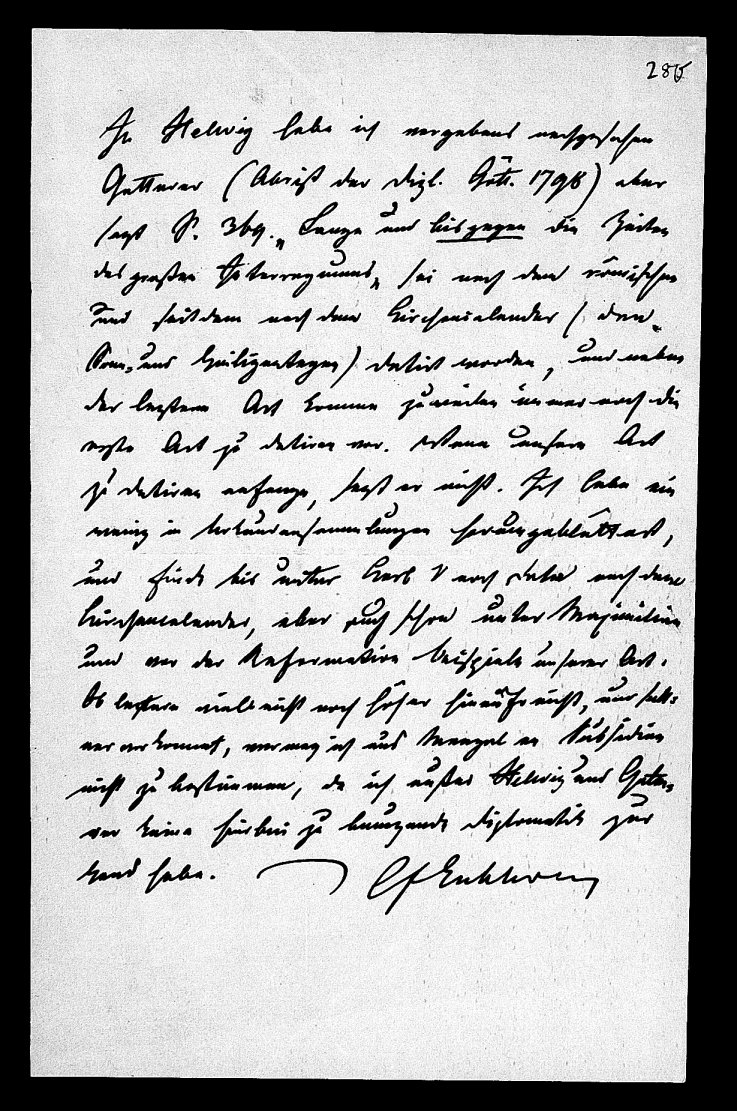 285
In Helwig habe ich vergebens nachgesehen
Gatterer (Abriß der Dipl. Gött. 1798) aber
sagt S. 369. „Lange und bis gegen die Zeiten
des großen Interregnums„ sei nach dem römischen
und seitdem nach dem Kirchencalender (den
Son- und Heiligentagen) datirt worden, und neben
der letztern Art komme zuweilen immer noch die
erste Art zu datiren vor. Wann unsere Art
zu datiren anfange, sagt er nicht. Ich habe ein
wenig in Urkundensammlungen herumgeblättert,
und finde bis unter Karl V noch Data nach dem
Kirchencalender, aber auch schon unter Maximilian
und vor der Reformation Beispiele unserer Art.
Ob letztere vielleicht noch höher hinaufreicht, nur selt-
ner vorkommt, vermag ich aus Mangel an Subsidien
nicht zu bestimmen, da ich außer Helwig und Gatte-
rer keine hierbei zu benutzende Diplomatik zur
Hand habe.